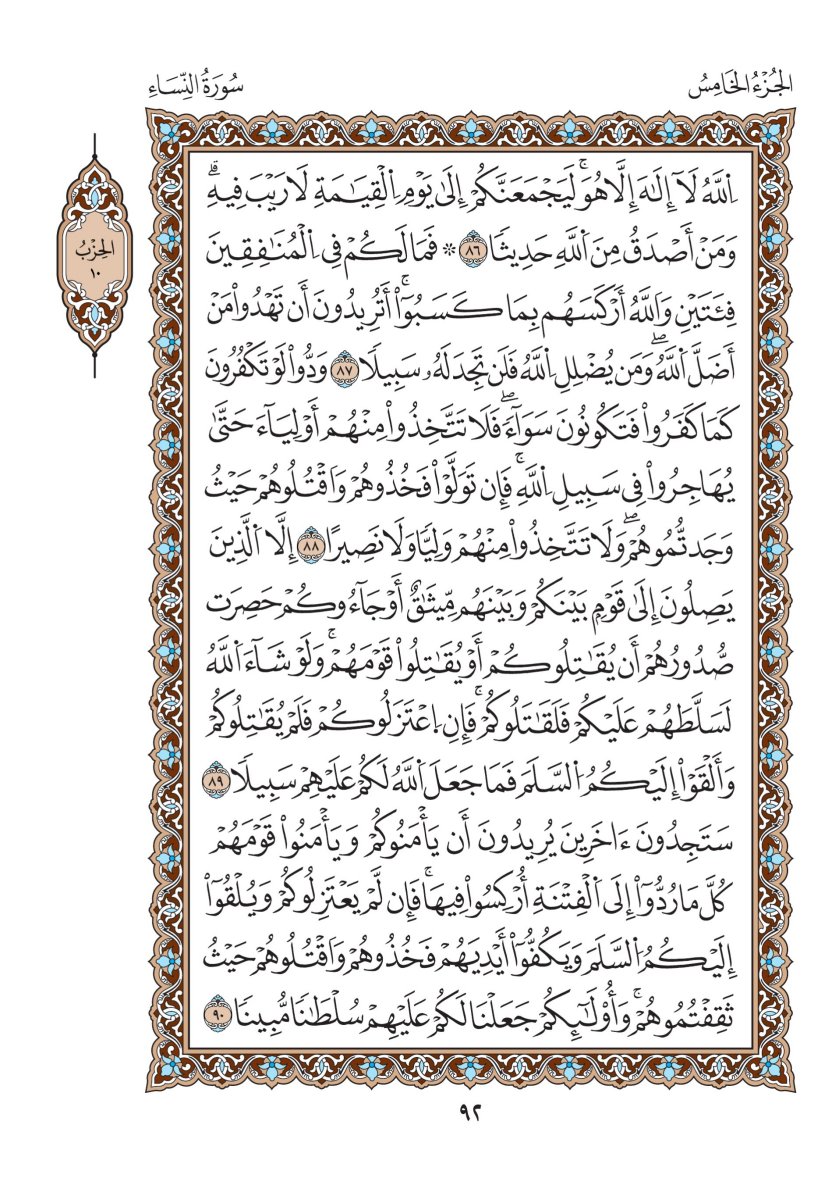 الجُزْءُ الخَامِسُ
سُورَةُ النِّسَاءِ
الحِزْبُ
١٠
اِ۬للَّهُ لَآ إِلَٰهَ إِلَّا هُوَۚ لَيَجْمَعَنَّكُمْ إِلَىٰ يَوْمِ اِ۬لْقِيَٰمَةِ لَا رَيْبَ فِيهِۗ
وَمَنْ أَصْدَقُ مِنَ اَ۬للَّهِ حَدِيثًا ٨٦ ۞ فَمَا لَكُمْ فِي اِ۬لْمُنَٰفِقِينَ
فِئَتَيْنِ وَاللَّهُ أَرْكَسَهُم بِمَا كَسَبُوٓاْۚ أَتُرِيدُونَ أَن تَهْدُواْ مَنْ
أَضَلَّ اَ۬للَّهُۖ وَمَن يُضْلِلِ اِ۬للَّهُ فَلَن تَجِدَ لَهُۥ سَبِيلًا ٨٧ وَدُّواْ لَوْ تَكْفُرُونَ
كَمَا كَفَرُواْ فَتَكُونُونَ سَوَآءًۖ فَلَا تَتَّخِذُواْ مِنْهُمْ أَوْلِيَآءَ حَتَّىٰ
يُهَاجِرُواْ فِي سَبِيلِ اِ۬للَّهِۚ فَإِن تَوَلَّوْاْ فَخُذُوهُمْ وَاقْتُلُوهُمْ حَيْثُ
وَجَدتُّمُوهُمْۖ وَلَا تَتَّخِذُواْ مِنْهُمْ وَلِيًّا وَلَا نَصِيرًا ٨٨ إِلَّا اَ۬لَّذِينَ
يَصِلُونَ إِلَىٰ قَوْمِۭ بَيْنَكُمْ وَبَيْنَهُم مِّيثَٰقٌ أَوْ جَآءُوكُمْ حَصِرَت
صُّدُورُهُمْ أَن يُقَٰتِلُوكُمْ أَوْ يُقَٰتِلُواْ قَوْمَهُمْۚ وَلَوْ شَآءَ اَ۬للَّهُ
لَسَلَّطَهُمْ عَلَيْكُمْ فَلَقَٰتَلُوكُمْۚ فَإِنِ اِ۪عْتَزَلُوكُمْ فَلَمْ يُقَٰتِلُوكُمْ
وَأَلْقَوْاْ إِلَيْكُمُ اُ۬لسَّلَمَ فَمَا جَعَلَ اَ۬للَّهُ لَكُمْ عَلَيْهِمْ سَبِيلًا ٨٩
سَتَجِدُونَ ءَاخَرِينَ يُرِيدُونَ أَن يَأْمَنُوكُمْ وَيَأْمَنُواْ قَوْمَهُمْ
كُلَّ مَا رُدُّوٓاْ إِلَى اَ۬لْفِتْنَةِ أُرْكِسُواْ فِيهَاۚ فَإِن لَّمْ يَعْتَزِلُوكُمْ وَيُلْقُوٓاْ
إِلَيْكُمُ اُ۬لسَّلَمَ وَيَكُفُّوٓاْ أَيْدِيَهُمْ فَخُذُوهُمْ وَاقْتُلُوهُمْ حَيْثُ
ثَقِفْتُمُوهُمْۚ وَأُوْلَٰٓئِكُمْ جَعَلْنَا لَكُمْ عَلَيْهِمْ سُلْطَٰنًا مُّبِينًا ٩٠
٩٢